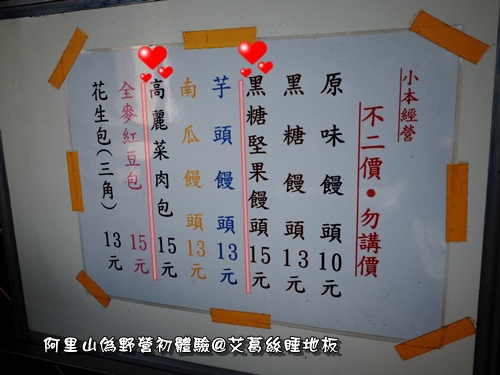 小本經營
不二價•勿講價
原味饅頭10元
黑糖饅頭13元
黑糖堅果饅頭15元
芋頭饅頭13元
南瓜饅頭13元
高麗菜肉包15元
全麥紅豆包15元
花生包(三角)13元
阿里山偽野營初體驗@艾葛絲睡地板